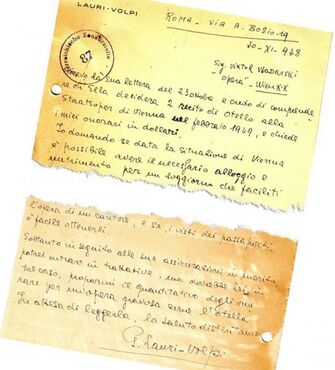 LAURI-VOLPI
ROMA - VIA A. BOSIO 19
20-XI-948
Sig. Viktor Wladarski
"Opera" - Wien XX
87
la Sua lettera del 23 ottobre e credo di comprendere
che Ella desidera 2 recite di Otello alla
Staatsoper di Vienna nel febbraio 1949, e chiede
i miei onorari in dollari.
Io domando se data la situazione di Vienna
è possibile avere il necessario alloggio e
nutrimento per un soggiorno che faciliti
l'opera di un cantore, e se i visti dei passaporti
è facile ottenerli.
Soltanto in seguito alle sue assicurazioni in merito
potrei entrare in trattative, ma dovrebbe Lei in
tal caso, propormi il quantitativo degli ono-
rari per un'opera gravosa come l'Otello.
In attesa di leggerla, la saluto distintamente
Lauri-Volpi